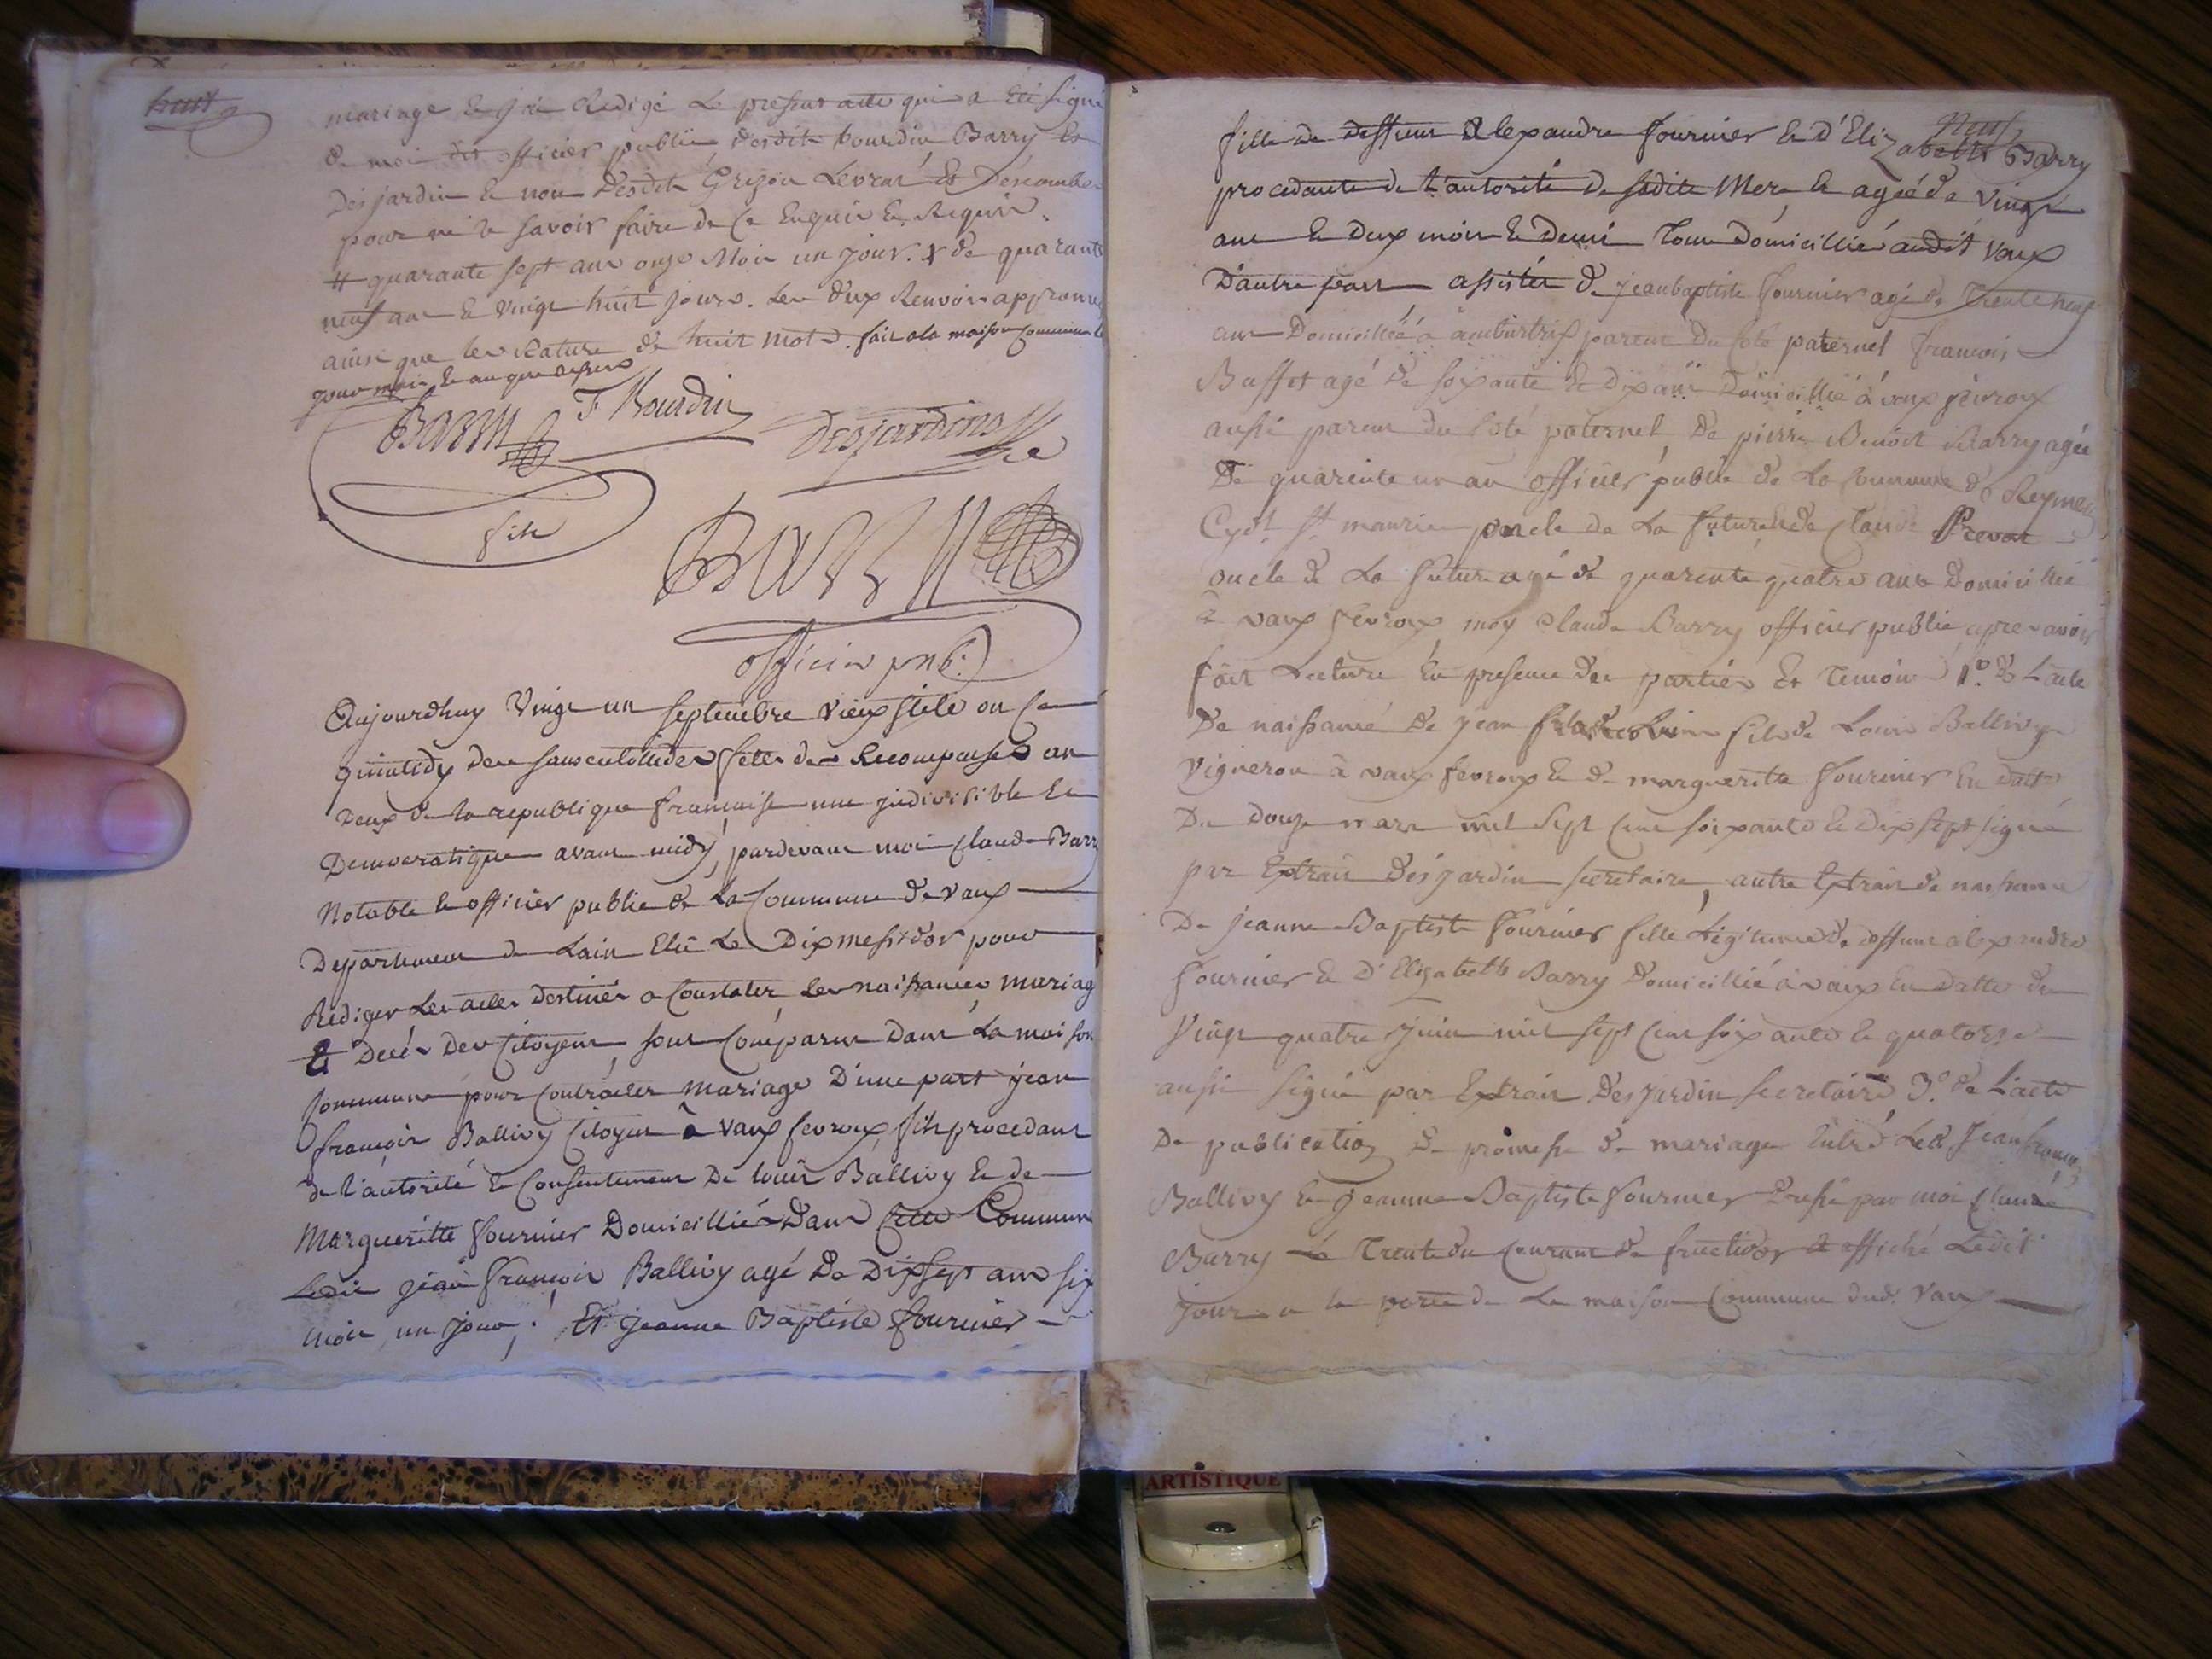 huit
mariage & j'ai Redigé Le present acte qui a Eté signé
de moi dit officier public desdits bourdin Barry Et
Desjardin & non desdits Grizon Levrat Et Descombe
pour ne le savoir faire de ce Enquis & Requis.
# quarante sept ans onze Mois un jour. X de quarante
neuf ans & vingt huit jours. Les deux Renvois approuvés
ainsi que les Rature de huit mots. fait a la maison Commune Le
jour mois & an que dessus
Barry F Bourdin Desjardins
fils
Barry
officier pub.
Aujourdhuy Vingt un septembre vieux stile ou ce
quintidy des sansculotides fette des Recompenses an
Deux de la republique francaise une jndivisible Et
Democratique avant midy, pardevant moi Claude Barry
Notable & officier public de La Commune de Vaux
Departement de Lain Elû Le Dix messidor pour
Rediger Les actes destinés a Constater les naissances, mariag
& Decés Des Citoyens, sont Comparus Dans La maison
Commune pour Contracter mariage D'une part jean
françois Ballivy Citoyen à Vaux fevroux fils procedant
de l'autorité & Consentement De louis Ballivy & de
Margueritte fournier Domicilliés Dans Cette Commune
Ledit jean françois Ballivy agé De Dixsept ans six
mois un jour; Et jeanne Baptiste fournier
Neuf
fille de deffunt Alexandre fournier & d'Elizabeth Barry
procedante de l'autorité de sadite Mere & agée de Vingt
ans & deux mois & Demi Tous Domicilliés audit Vaux
D'autre part assistés de jeanbaptiste fournier agé de Trente neuf
ans Domicillié à parent Du Coté paternel francois
Buffet agé de soixante & dix ans Domicillié à vaux fevroux
aussi parent du Coté paternel De pierre Benoit Barry agée
De quarente un an officier public de La Commune de
St maurice oncle de La future & de Claude Prevat
oncle de La future agé de quarente quatre ans Domicillié
à vaux fevroux, moy Claude Barry officier public apres avoir
fait Lecture En presence des parties Et Temoins 1º. de Lacte
De naissance De jean fils de Louis Ballivy
Vigneron à vaux fevroux & de marguerite fournier En datte
Du douze mars mil sept Cent soixante & dix sept signé
par Extrait Desjardin secretaire, autre Extrait de naissance
De jeanne Baptiste fournier fille Légitime de deffunt alexandre
fournier & D'Elizabeth Barry Domicillié à vaux En Datte du
Vingt quatre juin mil sept Cent soixante & quatorze
aussi signé par Extrait Desjardin secretaire 3º. de L'acte
De publication De promesse de mariage Entre Led Jean francois
Ballivy & jeanne Baptiste fournier Dressé par moi Claude
Barry Le Trente du Courant de fructidor & affiché Ledit
jour a la porte de La maison Commune dud. Vaux
ARTISTIQUE